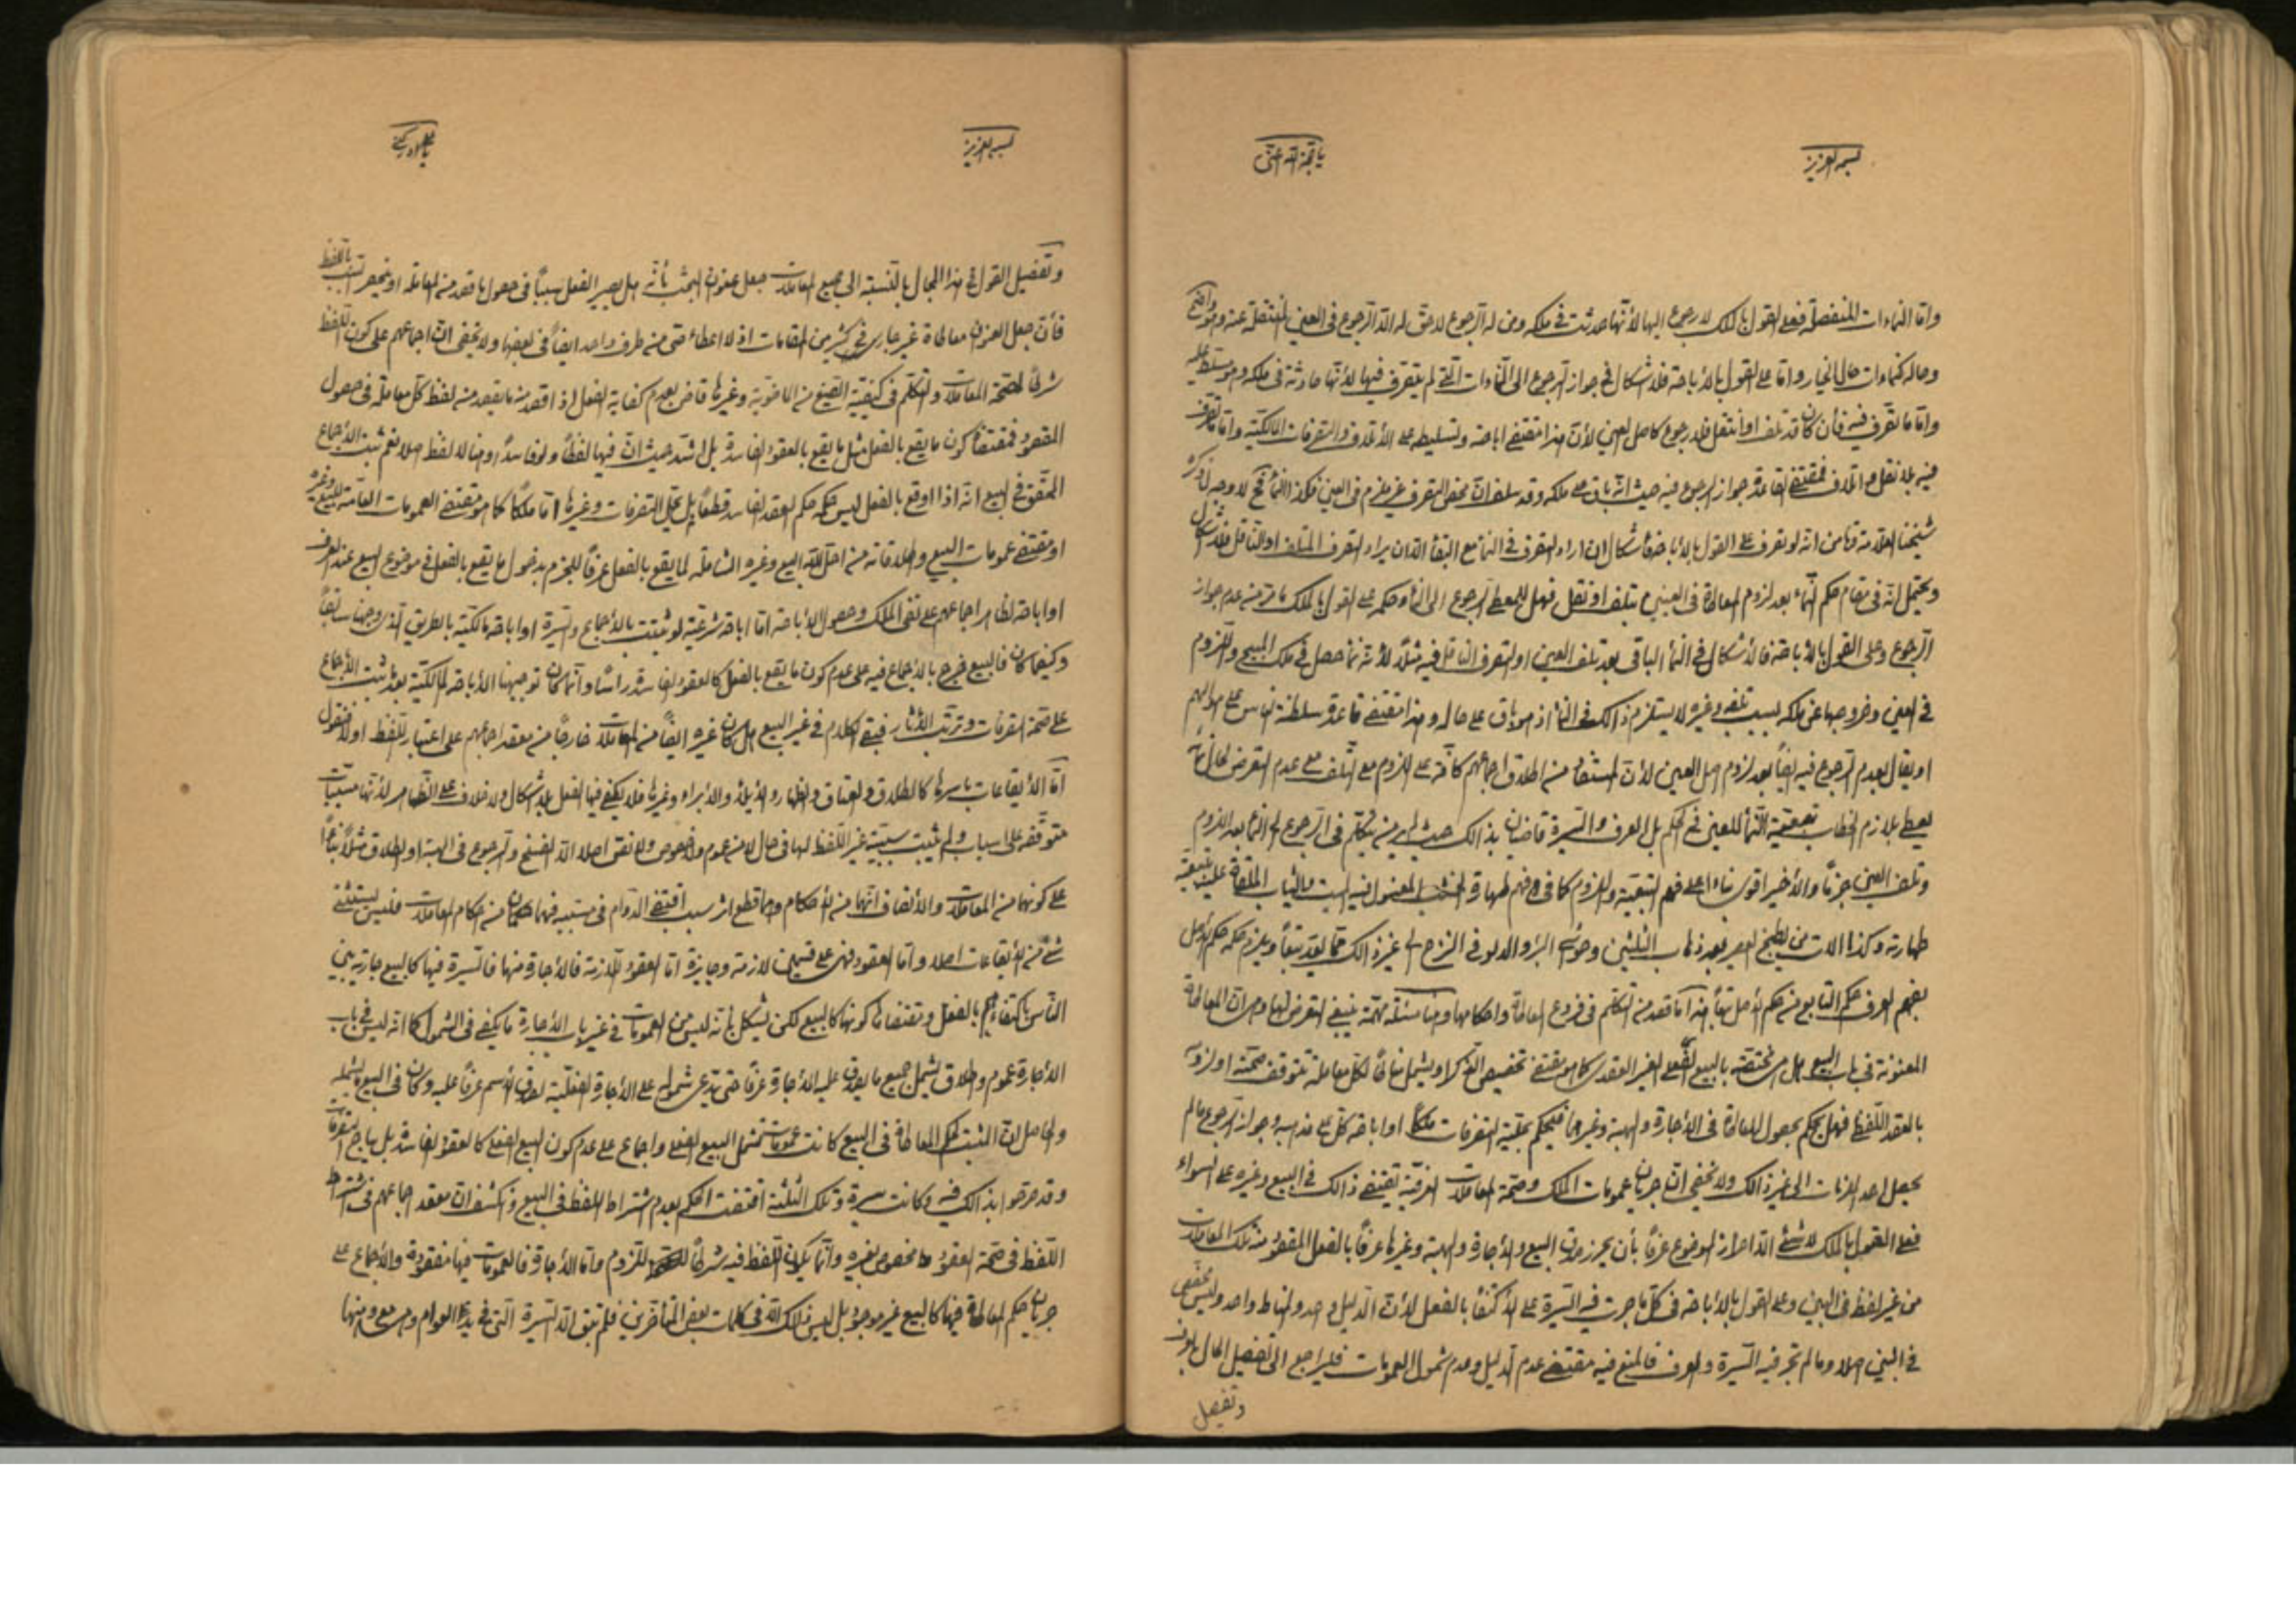 بسمه العزيز
يا حجة الله اغثني
وامّا النماءات المنفصلة فعلى القول بالملك لا رجوع اليها لأنّها حدثت في ملكه ومن له الرجوع لا حقّ له الّا الرجوع في العين المنتقلة عنه وهو واضح
وحاله كنماءات حال الخيار وامّا على القول بالأباحة فلا اشكال في جواز الرجوع الى النماءات الّتي لم يتصرف فيها لأنّها حادثة في ملكه وهو مسلّط عليه
وامّا ما تصرّف فيه فأن كان قد تلف او انتقل فلا رجوع كاصل العين لأنّ هذا مقتضى اباحته وتسليطه على الأتلاف والتصرفات المالكيّة وامّا ما تصرّف
فيه بلا نقل ولا اتلاف فمقتضى القاعدة جواز الرجوع فيه حيث انّه باق على ملكه وقد سلف انّ محض التصرف غير ملزم في العين فكذا النماء فح لا وجه لما ذكره
شيخنا العلّامة من انه لو تصرف على القول بالأباحة فأشكال ان اراد التصرف في النماء مع البقاء الّا ان يراد التصرف المتلف او الناقل فلا اشكال
ويحتمل انّه في مقام حكم النّماء بعد لزوم المعاطاة في العينين بتلف او نقل فهل للمعطي الرجوع الى النماء وحكمه على القول بالملك ما مرّ من عدم جواز
الرجوع وعلى القول بالأباحة فالأشكال في النماء الباقي بعد تلف العين او التصرف الناقل فيه مثلاً لأنّه نماء حصل في ملك المبيح واللزوم
في العين وخروجها عن ملكه بسبب تلفه وغيره لا يستلزم ذالك في النماء اذ هو باق على حاله وهذا مقتضى قاعدة سلطنة الناس على اموالهم
او يقال بعدم الرجوع فيه ايضاً بعد لزوم اصل العين لأنّ المستفاد من اطلاق اجماعهم كافّة على اللزوم مع التّلف مع عدم التعرض لحال نماء
يعطى بلازم الخطاب تبعيّة النّماء للعين في الحكم بل العرف والسّيرة قاضيان بذالك حيث لم نر من يتكلّم في الرّجوع الى النماء بعد اللزوم
وتلف العين جزماً والأخير اقوى بناءاً على فهم التبعيّة واللزوم كما في فهم طهارة الخشب المغسول فيه الميت والثياب الملقاة عليه بتبعيّة
طهارته وكذا الات من يطبخ العصير بعد ذهاب الثلثين وحواشي البئر والدلو في النزح الى غير ذالك ممّا يعدّ تبعاً ويلزم حكمه حكم الأصل
بفهم العرف حكم التابع من حكم الأصل تبعاً هذا ما قصد من التكلّم في فروع المعاطاة واحكامها وهنا مسئلة مهمّة ينبغي التعرض لها وهي انّ المعاطاة
المعنونة في باب البيع هل هي مختصّة بالبيع الفعلي الغير العقدي كما هو مقتضى تخصيص الذكر او يشمل بابها لكلّ معاملة تتوقف صحّته او لزومه
بالعقد اللّفظي فهل يحكم بحصول المعاطاة في الأجارة والهبة وغيرهما فيحكم بحليّة التصرفات ملكاً او اباحة كلّ على مذهبه وجواز الرّجوع مالم
يحصل احد الملزمات الى غير ذالك ولا يخفى انّ جريان عمومات الملك وصحّة المعاملات العرفيّة يقتضي ذالك في البيع وغيره على السواء
فعلى القول بالملك لا شئ الّا احراز الموضوع عرفاً بأن يحرز صدق البيع والأجارة والهبة وغيرها عرفاً بالفعل المقصود منه تلك المعاملات
من غير لفظ في البين وعلى القول بالأباحة في كلّ ما جرت فيه السّيرة على الأكتفاء بالفعل لأنّ الدّليل واحد والمناط واحد وليس مخصّص
في البين اصلا وما لم تجر فيه السّيرة والعرف فالمنع فيه مقتضى عدم الدّليل وعدم شمول العمومات فليراجع الى تفصيل الحال
وتفصيل
بسمه العزيز
وتفصيل القول في هذا المجال بالنّسبة الى جميع المعاملات جعل عنوان البحث بأنّه هل يصير الفعل سبباً في حصول ما قصد منه المعاملة او ينحصر السّبب باللّفظ
فأنّ جعل العنوان معاطاة غير جاري في كثير من المقامات اذ لا اعطاء حتى من طرف واحد ايضاً في بعضها ولا يخفى انّ اجماعهم على كون اللّفظ
شرطاً لصحّة المعاملات والتكلّم في كيفيّة الصّيغ من الماضويّة وغيرها قاض بعدم كفاية الفعل اذا قصد منه ما يقصد من لفظ كلّ معاملة في حصول
المقصود فمقتضاه كون ما يقع بالفعل مثل ما يقع بالعقود الفاسدة بل اشدّ حيث انّ فيها لفظاً ولو فاسداً وهنا لا لفظ اصلا نعم ثبت الأجماع
المحقّق في البيع انّه اذا اوقع بالفعل ليس حكمه حكم العقد الفاسد قطعاً بل يحلّ التصرفات وغيرها امّا ملكاً كما هو مقتضى العمومات العامّة للبيع وغيره
او مقتضى عمومات البيع واطلاقاته من احلّ الله البيع وغيره الشاملة لما يقع بالفعل عرفاً للجزم بدخول ما يقع بالفعل في موضوع البيع عند العرف
او اباحة لظاهر اجماعهم على نفي الملك وحصول الأباحة امّا اباحة شرعيّة لو ثبتت بالأجماع والسّيرة او اباحة مالكيّة بالطريق الّذي وجّهنا سابقاً
وكيفما كان فالبيع خرج بالأجماع فيه على عدم كون ما يقع بالفعل كالعقود الفاسدة رأساً وانّما كان توجيهنا الأباحة المالكيّة بعد ثبت الأجماع
على صحّة التصرفات وترتّب الأثار فبقي الكلام في غير البيع هل كان غيره ايضاً من المعاملات خارجاً من معقد اجماعهم على اعتبار اللّفظ او لا فنقول
امّا الأيقاعات باسرها كالطلاق والعتاق والظهار والأيلاء والأبراء وغيرها فلا يكفي فيها الفعل بلا اشكال ولا خلاف على الظّاهر لأنّها مسبّبات
متوقّفة على اسباب ولم يثبت سببيّة غير اللّفظ لها في حال لا من عموم ولا خصوص ولا نقض اصلا الّا الفسخ والرجوع في الهبة او الطلاق مثلاً بناءاً
على كونها من المعاملات والأنصاف انّهما من الأحكام وهما قطع اثر سبب اقتضى الدّوام في مسبّبه فهما حكمان من احكام المعاملات فليس يستثنى
شئ من الأيقاعات اصلا وامّا العقود فهي على قسمين لازمة وجايزة امّا العقود اللّازمة فالأجارة منها فالسّيرة فيها كالبيع جارية بين
النّاس باكتفائهم بالفعل ومقتضاها كونها كالبيع لكن يشكل بأنّه ليس من العمومات في غير باب الأجارة ما يكفي في الشمول كما انّه ليس في باب
الأجارة عموم واطلاق يشمل جميع ما يصدق عليه الأجارة عرفاً حتى يدّعى شموله على الأجارة الفعليّة لصدق الأسم عرفاً عليه وكان في البيع ما يشمله
والحاصل انّ المثبت لحكم المعاطاة في البيع كانت عمومات تشمل البيع الفعلي واجماع على عدم كون البيع الفعلي كالعقود الفاسدة بل يباح به التصرفات
وقد صرّحوا بذالك فيه وكانت سيرة وتلك الثلثة اقتضت الحكم بعدم اشتراط اللفظ في البيع وانكشف انّ معقد اجماعهم في اشتراط
اللّفظ في صحّة العقود مخصوص بغيره وانّما يكون اللّفظ فيه شرطاً للّزوم وامّا الأجارة فالعمومات فيها مفقودة والأجماع على
جريان حكم المعاطاة فيها كالبيع غير موجود بل ليس ذلك الّا في كلمات بعض المتأخّرين فلم يبق الّا السّيرة الّتي في يد العوام